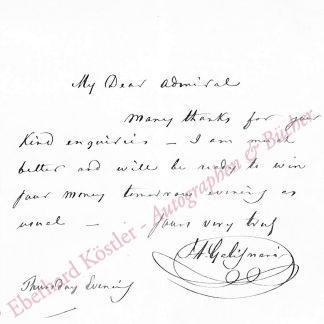 My Dear Admiral
Many thanks for your
kind enquiries – I am much
better and will be ready to win
your money tomorrow evening as
usual — . Yours very truly
J A Galignani
Thursday Evening
Eberhard Köstler - Autographen & Bücher